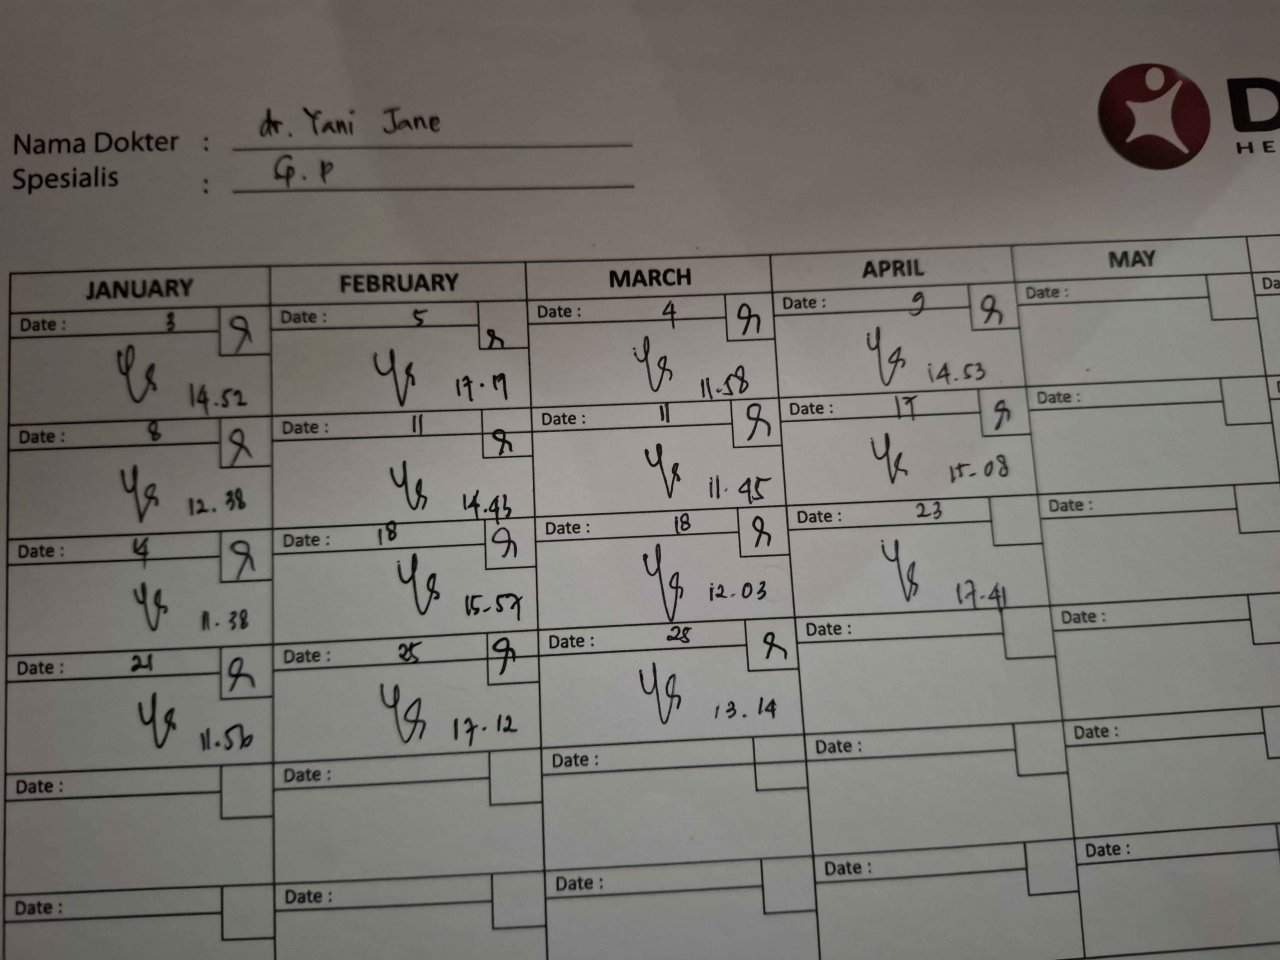 dr. Yani Jane
Nama Dokter :
G.P
Spesialis :
D
HE
JANUARY FEBRUARY MARCH APRIL MAY
Date : 3 Date : 5 Date : 4 Date : 9 Date : Da
14.52 17.17 11.58 14.53
Date : 8 Date : 11 Date : 11 Date : 17 Date :
12.38 14.43 11.45 15-08
Date : Date : 18 Date : 18 Date : 23 Date :
11.38 15-57 12.03 17-41
Date : 21 Date : 25 Date : 25 Date : Date :
11.56 17.12 13.14
Date : Date : Date : Date : Date :
Date : Date : Date : Date : Date :